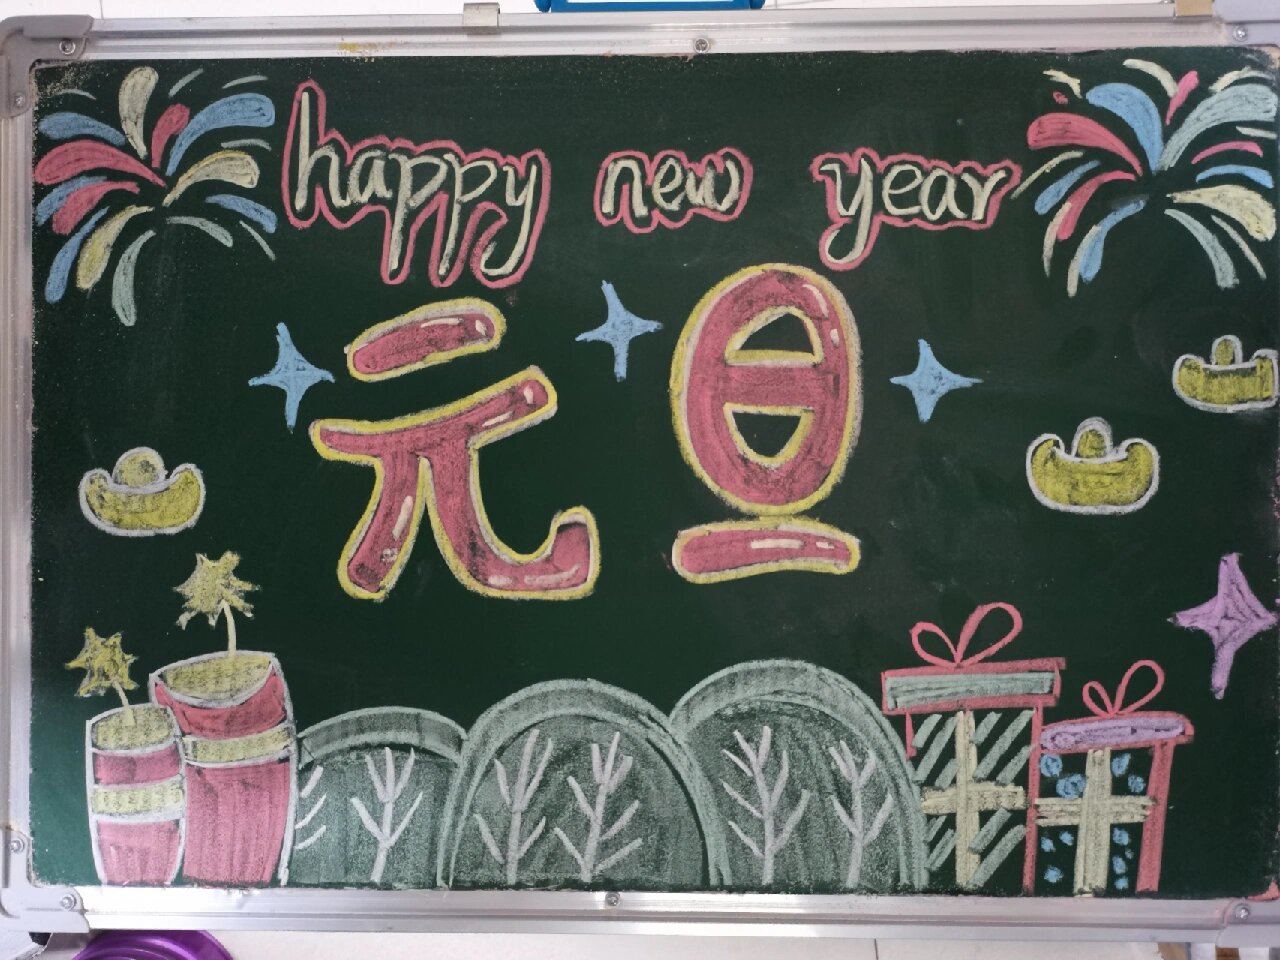 happy new year
元旦